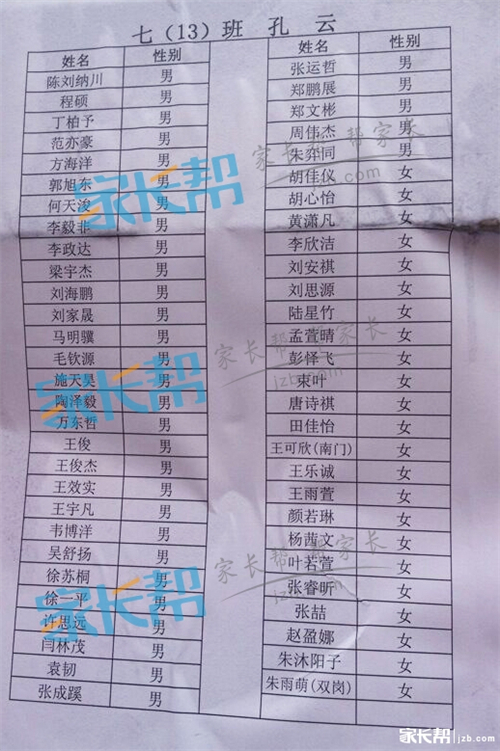 七（13）班 孔 云
姓名 性别
陈刘纳川 男
程硕 男
丁柏予 男
范亦豪 男
方海洋 男
郭旭东 男
何天浚 男
李毅非 男
李政达 男
梁宇杰 男
刘海鹏 男
刘家晟 男
马明骥 男
毛钦源 男
施天昊 男
陶泽毅 男
万东哲 男
王俊 男
王俊杰 男
王效实 男
王宇凡 男
韦博洋 男
吴舒扬 男
徐苏桐 男
徐一平 男
许思远 男
闫林茂 男
袁韧 男
张成蹊 男
姓名 性别
张运哲 男
郑鹏展 男
郑文彬 男
周伟杰 男
朱弈同 男
胡佳仪 女
胡心怡 女
黄潇凡 女
李欣洁 女
刘安祺 女
刘思源 女
陆星竹 女
孟萱晴 女
彭怿飞 女
束叶 女
唐诗祺 女
田佳怡 女
王可欣(南门) 女
王乐诚 女
王雨萱 女
颜若琳 女
杨茜文 女
叶若萱 女
张睿昕 女
张喆 女
赵盈娜 女
朱沐阳子 女
朱雨萌(双岗) 女
家长帮
家长帮
家长帮
家长帮 帮家长
jzb.com
家长帮 帮家长
jzb.com
家长帮 帮家长
jzb.com
家长帮 jzb.com